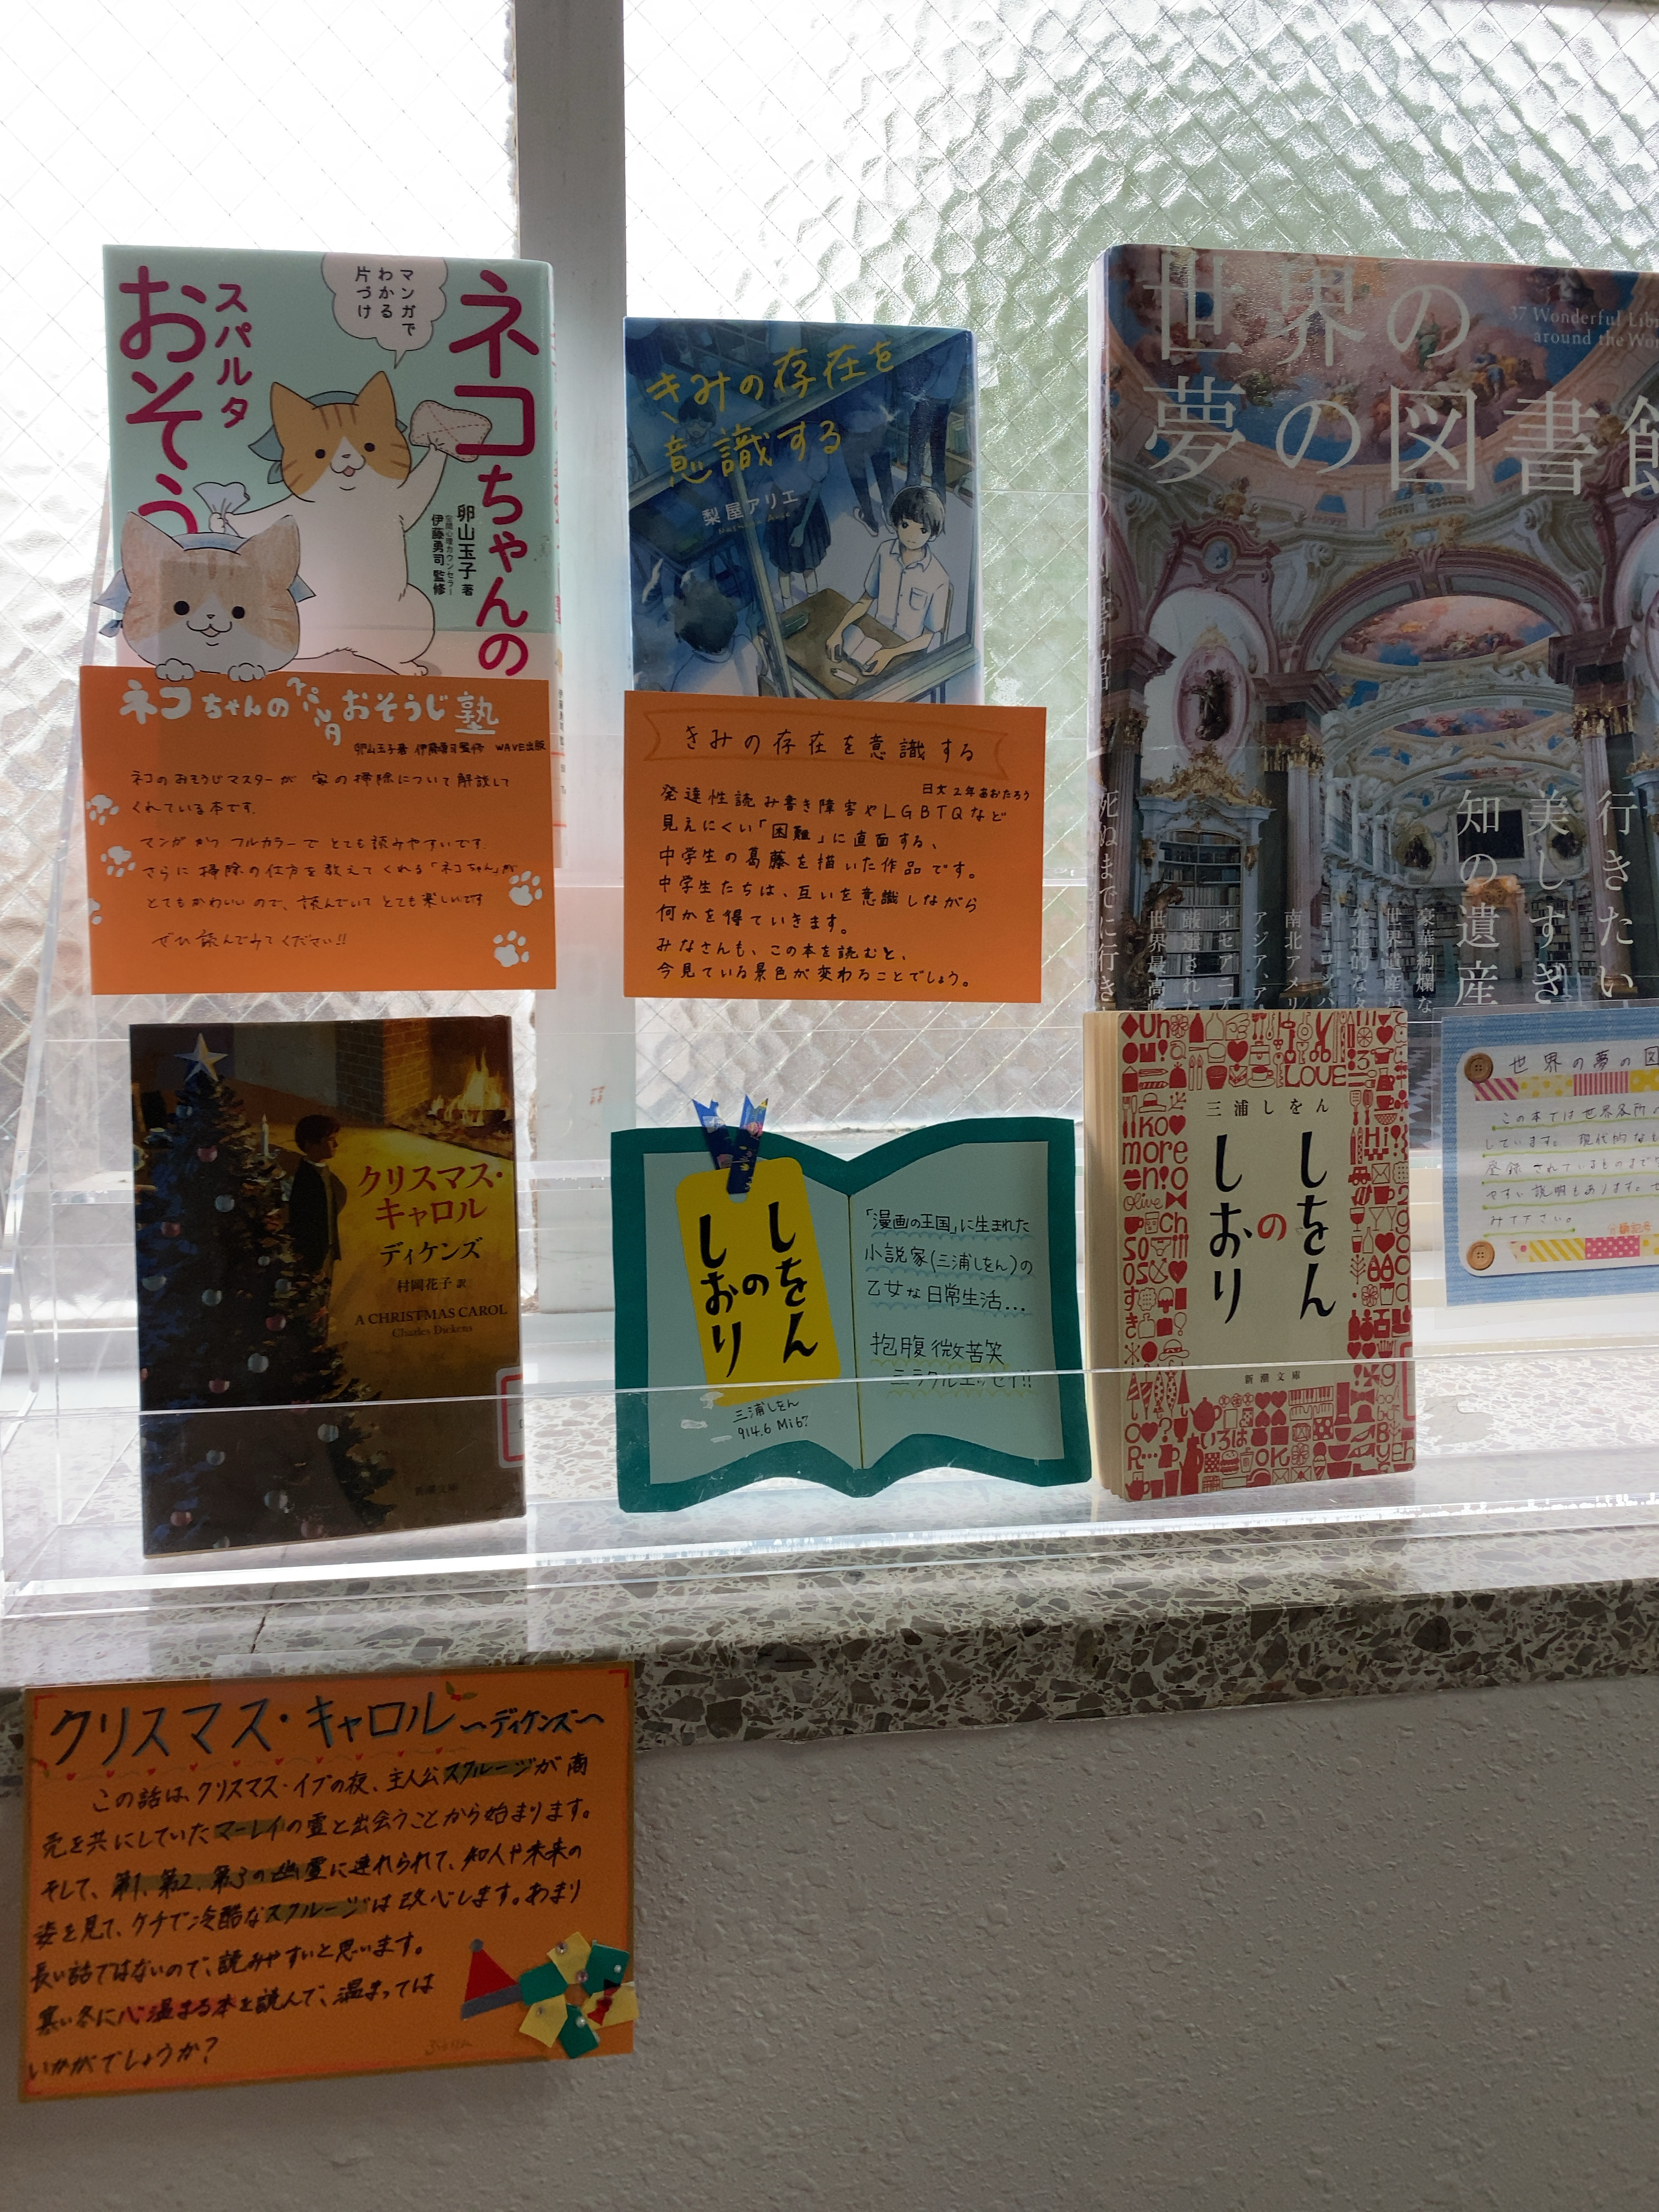 ネコちゃんの
スパルタ
おそう
マンガで
わかる
片づけ
卵山玉子 著
空間心理カウンセラー
伊藤勇司 監修
ネコちゃんのスパルタおそうじ塾
卵山玉子著 伊藤勇司監修 WAVE出版
ネコのおそうじマスターが 家の掃除について解説して
くれている本です。
マンガかつフルカラーでとても読みやすいです。
さらに掃除の仕方を教えてくれる「ネコちゃん」が
とてもかわいいので、読んでいてとても楽しいです
ぜひ読んでみてください!!
きみの存在を
意識する
梨屋アリエ
きみの存在を意識する
日文2年あおたろう
発達性読み書き障害やLGBTQなど
見えにくい「困難」に直面する、
中学生の葛藤を描いた作品です。
中学生たちは、互いを意識しながら
何かを得ていきます。
みなさんも、この本を読むと、
今見ている景色が変わることでしょう。
世界の
夢の図書館
37 Wonderful Libr
around the Wor
行きたい
美しすぎ
知の遺産
死ぬまでに行き
豪華絢爛な
世界遺産が
先進的な
ヨーロッパ
南北アメリ
アジア、ア
オセアニア
厳選された
世界最高峰
世界の夢の図
この本では世界各所の
しています。現代的なも
登録されているものまで
やすい説明もあります。
みて下さい。
クリスマス・
キャロル
ディケンズ
村岡花子 訳
A CHRISTMAS CAROL
Charles Dickens
新潮文庫
しをん
の
しおり
三浦しをん
914.6 Mi67
「漫画の王国」に生まれた
小説家(三浦しをん)の
乙女な日常生活...
抱腹微苦笑
ミラクルエッセイ!!
三浦しをん
しをん
の
しおり
新潮文庫
Uh
LOVE
ko
more
n!o
Olive
ch
so
so
すき
Hi!
いろは
OK
クリスマス・キャロル 〜ディケンズ〜
この話は、クリスマス・イブの夜、主人公スクルージが商
売を共にしていたマーレイの霊と出会うことから始まります。
そして、第1、第2、第3の幽霊に連れられて、知人や未来の
姿を見て、ケチで冷酷なスクルージは改心します。あまり
長い話ではないので、読みやすいと思います。
寒い冬に心温まる本を読んで、温まっては
いかがでしょうか?